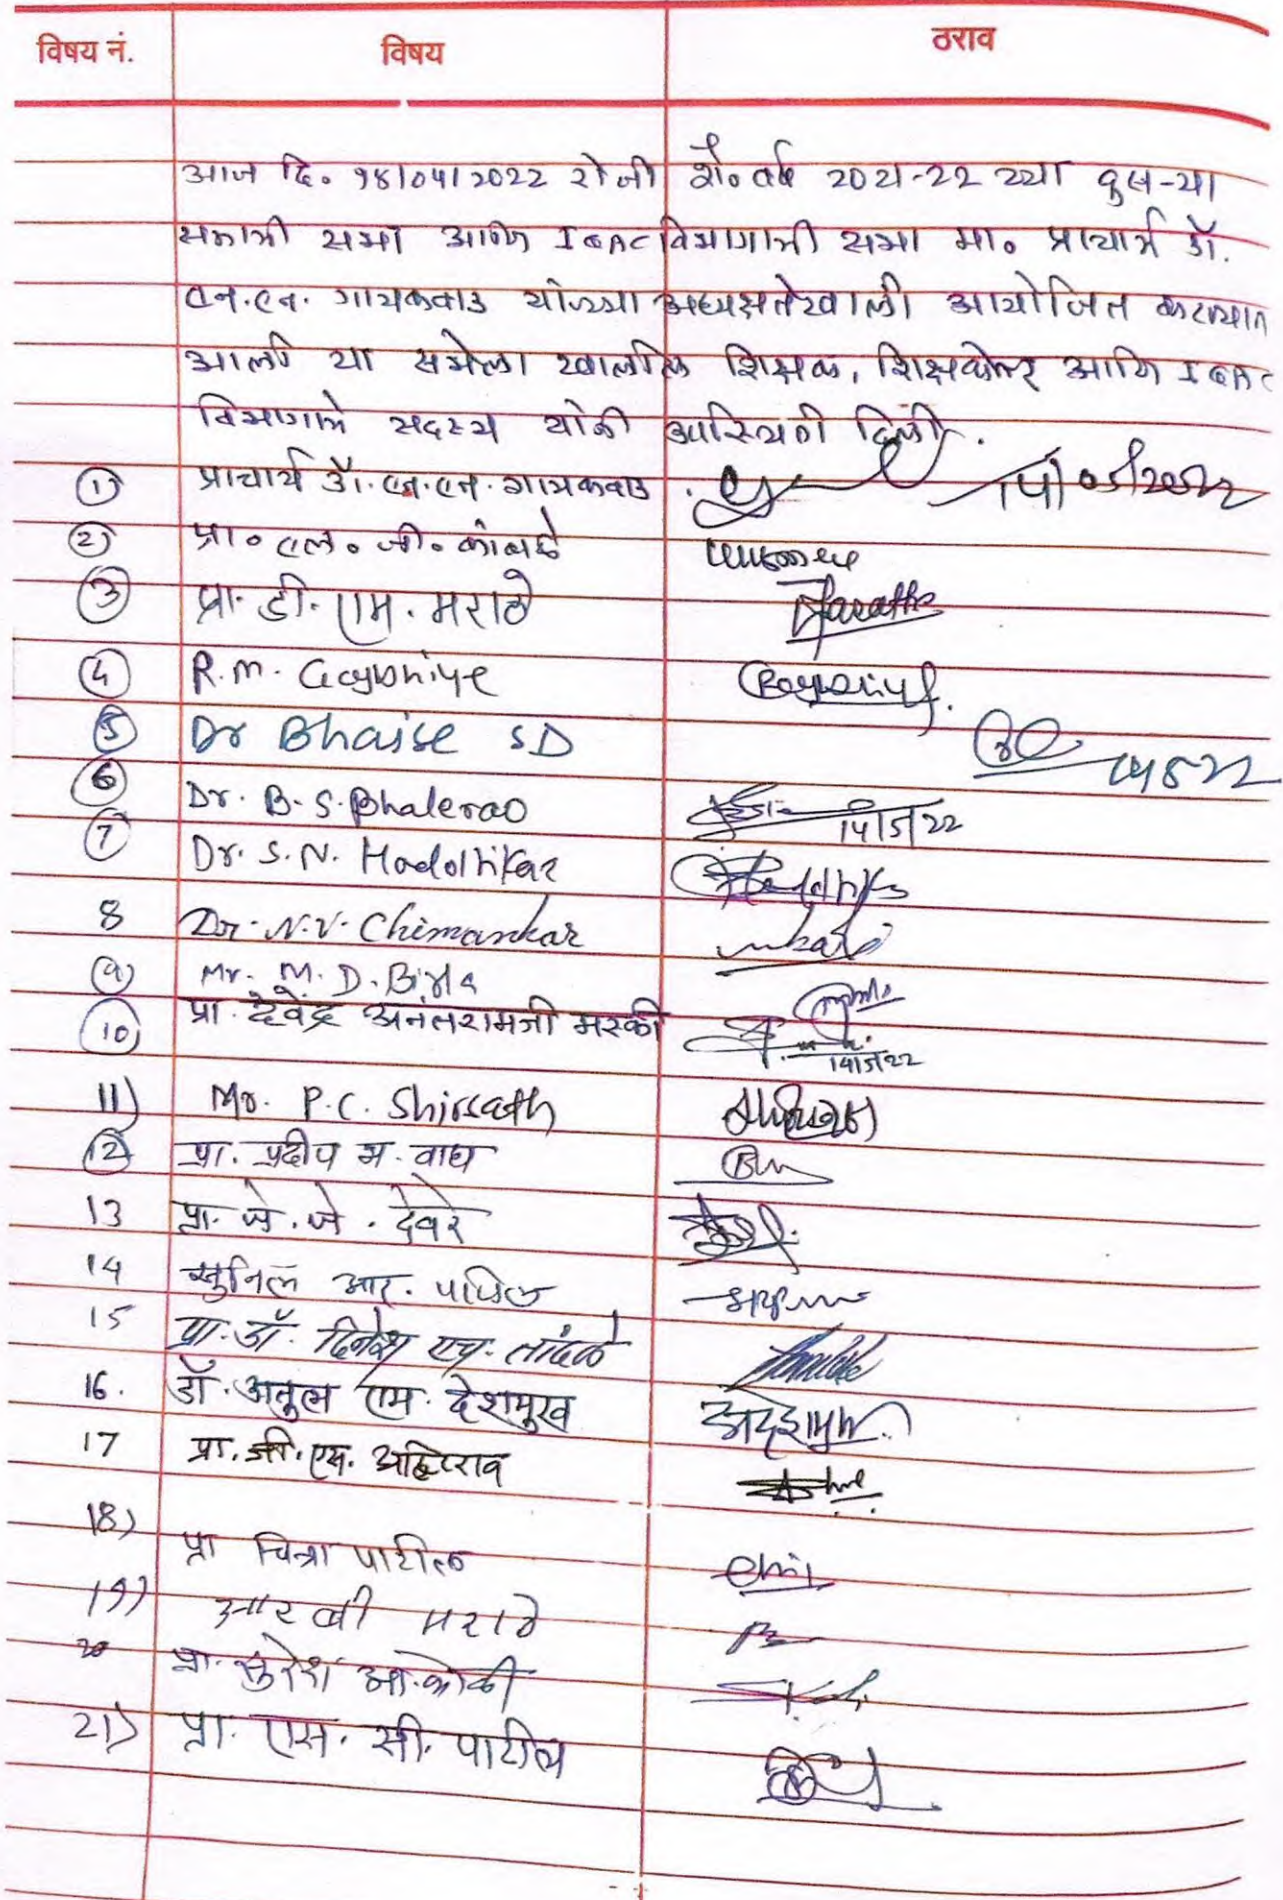 विषय नं. विषय ठराव
आज दि. १४/०५/२०२२ रोजी शै. वर्ष २०२१-२२ च्या दुसऱ्या
सत्राची सभा आणि IQAC विभागाची सभा मा. प्राचार्य डॉ.
एन.एन. गायकवाड यांच्या अध्यक्षतेखाली आयोजित करण्यात
आली या सभेला खालील शिक्षक, शिक्षकेत्तर आणि IQAC
विभागाचे सदस्य यांनी उपस्थिती दिली.
① प्राचार्य डॉ. एन.एन. गायकवाड. 14/05/2022
② प्रा. एल. जी.
③ प्रा. डी. एम. मराठे Marathe
④ R.M. Gaybhiye
⑤ Dr Bhaise SD 14 5 22
⑥ Dr. B. S. Bhalerao 14/5/22
⑦ Dr. S. N. Hadolhikar
8 Dr. N.V. Chimankar
⑨ Mr. M. D. Birla
⑩ प्रा. देवेंद्र अनंतरामजी मस्की 14/5/22
11) Mr. P.C. Shirsath
⑫ प्रा. प्रदीप म. वाघ
13 प्रा. जे. जे. देवरे
14 सुनिल आर. पाटील
15 प्रा. डॉ. दिनेश एच. तांदळे
16. डॉ. अतुल एम. देशमुख अदेशमुख
17 प्रा. जी. एस. अहिरराव
18) प्रा चित्रा पाटील
19) आर बी मराठे
20 प्रा. सुरेश आ. कोळी
21) प्रा. एस. सी. पाटील